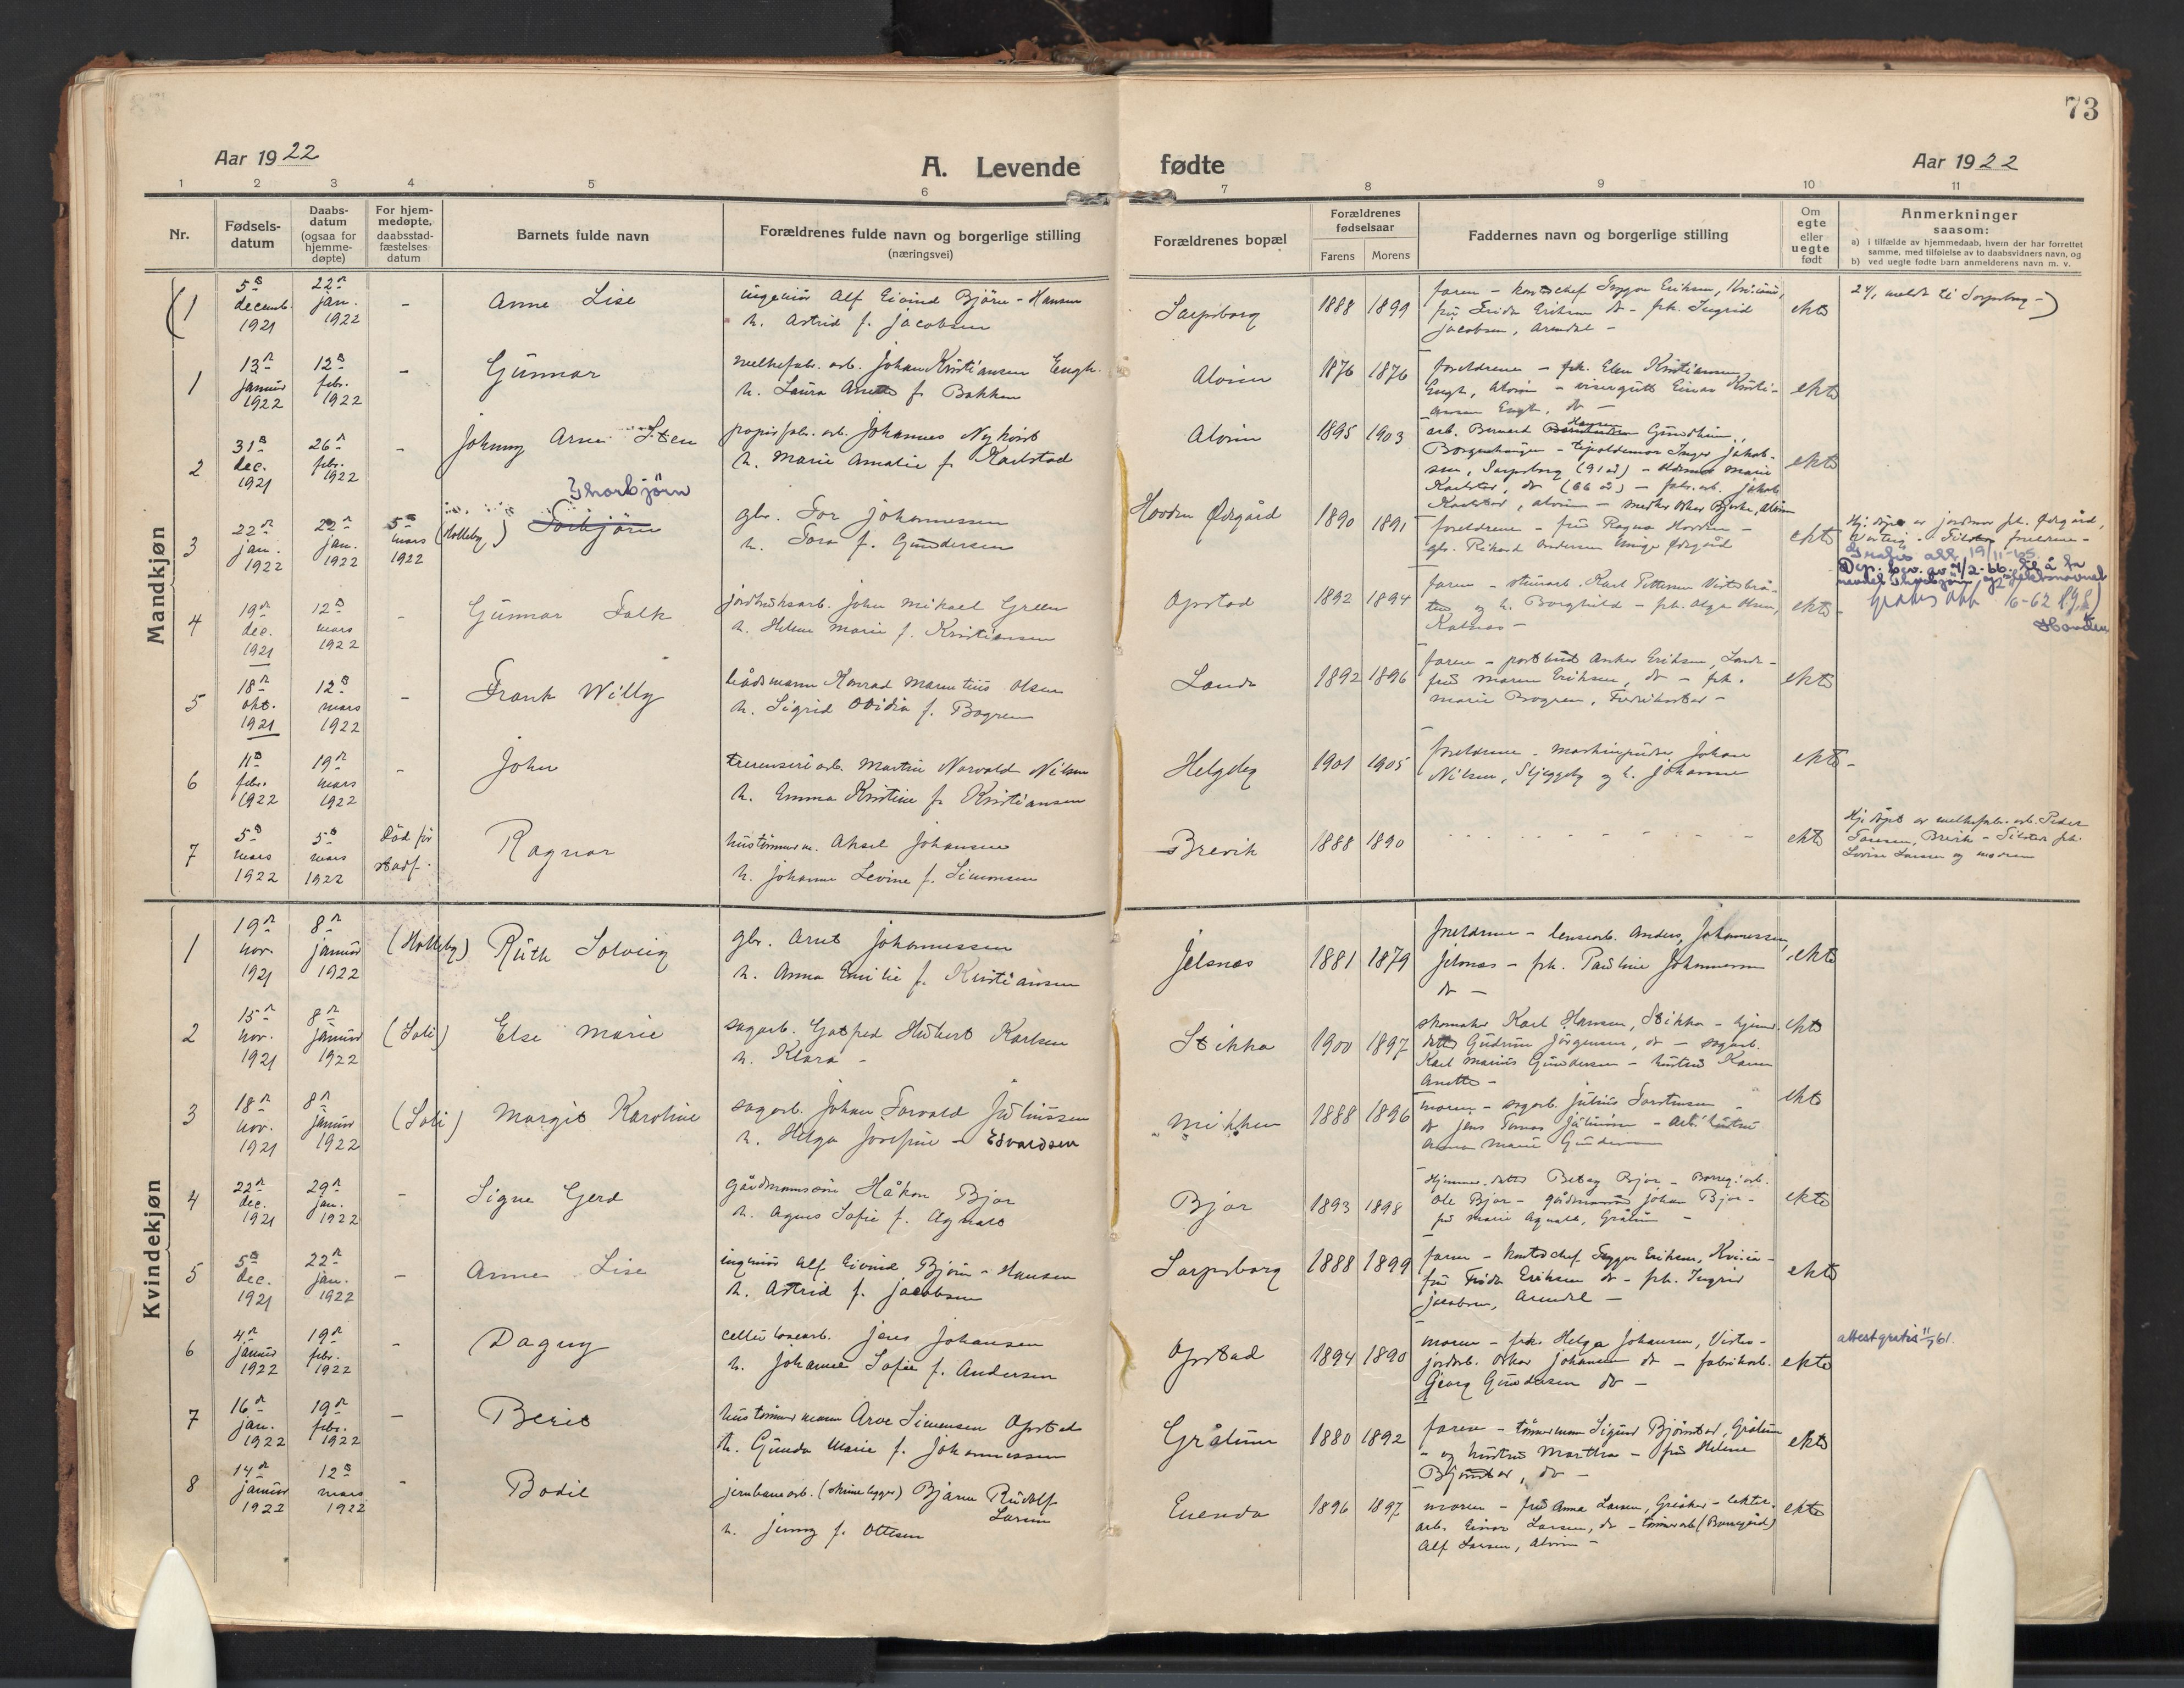 73
Aar 1922
A. Levende fødte
Aar 1922
1 2 3 4 5 6 7 8 9 10 11
Nr.
Fødsels-
datum
Daabs-
datum
(ogsaa for
hjemme-
døpte)
For hjem-
medøpte,
daabsstad-
fæstelses
datum
Barnets fulde navn
Forældrenes fulde navn og borgerlige stilling
(næringsvei)
Forældrenes bopæl
Forældrenes
fødselsaar
Farens Morens
Faddernes navn og borgerlige stilling
Om
egte
eller
uegte
født
Anmerkninger
saasom:
a) i tilfælde av hjemmedaab, hvem der har forrettet
samme, med tilføielse av to daabsvidners navn, og
b) ved uegte fødte barn anmelderens navn m. v.
Mandkjøn
(1 5 decemb. 1921 22 jan. 1922 - Anne Lise
ingeniør Alf Eivind Bjørn-Hansen
h. Astrid f. Jacobsen
Sarpsborg 1888 1899
faren - kontorchef Trygve Eriksen,
fru Frida Eriksen do - frk. Ingrid
Jacobsen, Arendal -
ekte
meldt til Sarpsborg -)
1 13 januar 1922 12 febr. 1922 - Gunnar
Johan Kristiansen Engh.
h. Laura Anette f. Bakken
Alvim 1876 1876
foreldrene - frk. Elen Kristiansen
Engh, Alvim - visergutt Einar Kristi-
ansen Engh, do -
ekte
2 31 dec. 1921 26 febr. 1922 - Johnny Arne Sten
papirfabr. arb. Johannes Nykvist
h. Marie Amalie f. Karlstad
Alvim 1895 1903
arb. Bernard Hansen Gundhim,
Sarpsborg (91 år) - oldemor Marie
Karlstad, do (66 år) - fabr. arb. Jakob
Karlstad, Alvim -
ekte
3 22 jan. 1922 22 jan. 1922 5 mars 1922 (Holleby) Torbjörn
Thorbjörn
gbr. Tor Johannessen
h. Tora f. Gundersen
Hovden Ødegård 1890 1891
foreldrene - fru Ragna Hovden -
gbr. Rikard Andersen
ekte
Hj. døpt av jordmor frk. Ødegård,
foreldrene -
Gratis att. 19/11-65.
Dep. bev. av 4/2-66 til å ta
navnet Thorbjörn og slektsnavnet
Hovden
Gratis att. /6-62
4 19 dec. 1921 12 mars 1922 - Gunnar Falk
jordbruksarb. John Mikael Green
h. Helene Marie f. Kristiansen
Opstad 1892 1894
faren - stenarb. Karl Pettersen
og h. Borghild - frk. Olga
Kalnæs -
ekte -
5 18 okt. 1921 12 mars 1922 - Frank Willy
bådsmann Konrad Marentius Olsen
h. Sigrid Otidia f. Bogren
Lande 1892 1896
faren - postbud Anker Eriksen, Lande -
fru Maren Eriksen, do - frk.
Marie Bogren, Fredrikstad -
ekte
6 11 febr. 1922 19 mars 1922 - John
Martin Norvald Nilsen
h. Emma Kristine f. Kristiansen
Helgeby 1901 1905
foreldrene - maskinpudser Johan
Nilsen, Skjeggeby og h. Johanne
ekte -
7 5 mars 1922 5 mars 1922 Død før stadf. Ragnar
hustømmerm. Aksel Johansen
h. Johanne Levine f. Simonsen
Brevik 1888 1890
- - - - - - - -
ekte
Hj. døpt av arb. Peder
Larsen, Brevik - Tilstede frk.
Lovise Larsen og moren
Kvindekjøn
1 19 nov. 1921 8 januar 1922 (Holleby) Ruth Solveig
gbr. Arnt Johannessen
h. Anna Emilie f. Kristiansen
Jelsnæs 1881 1879
foreldrene - lensearb. Anders Johannessen,
Jelsnæs - frk. Pauline Johannessen
do -
ekte
2 15 nov. 1921 8 januar 1922 (Soli) Else Marie
sagarb. Gotfred Hubert Karlsen
h. Klara -
Stikka 1900 1897
skomaker Karl Hansen, Stikka - hjemmev.
datter Gudrun Jørgensen, do - sagarb.
Karl Marius Gundersen - hustru Karen
Anette -
ekte
3 18 nov. 1921 8 januar 1922 (Soli) Margit Karoline
sagarb. Johan Torvald Juliussen
h. Helga Josefine - Edvardsen
Mikken 1888 1896
moren - sagarb. Julius Torstensen -
do Jens Juliussen - arb. hustru
Anna Marie Gundersen
ekte
4 22 dec. 1921 29 jan. 1922 - Signe Gerd
gårdmannssøn Håkon Bjor
h. Agnes Sofie f. Agnalt
Bjor 1893 1898
Hjemmev. datter Betsy Bjor -
Ole Bjor - gårdmand Johan Bjor -
fru Marie Agnalt, Grålum -
ekte
5 5 dec. 1921 22 jan. 1922 - Anne Lise
ingeniør Alf Eivind Bjørn-Hansen
h. Astrid f. Jacobsen
Sarpsborg 1888 1899
faren - kontorchef Trygve Eriksen,
fru Frida Eriksen do - frk. Ingrid
Jacobsen, Arendal -
ekte
6 4 januar 1922 19 febr. 1922 - Dagny
cellulosearb. Jens Johansen
h. Johanne Sofie f. Andersen
Opstad 1894 1890
moren - frk. Helga Johansen,
jordarb. Oskar Johansen do - fabrikarb.
Georg Gundersen do -
ekte
attest gratis 61.
7 16 jan. 1922 19 febr. 1922 - Berit
hustømmermann Arve Simensen Opstad
h. Gunda Marie f. Johannessen
Grålum 1880 1892
faren - tømmermann Sigurd Bjørnstad, Grålum
- og hustru Martha - fru Helene
Bjørnstad, do -
ekte
8 14 januar 1922 12 mars 1922 - Bodil
jernbanearb. (skinnelegger) Bjarne Rudolf
Larsen
h. Jenny f. Ottesen
Euenda 1896 1897
moren - fru Anna Larsen, Greåker -
arb. Einar Larsen, do - tømmerarb (Borregård)
Alf Larsen, Alvim -
ekte